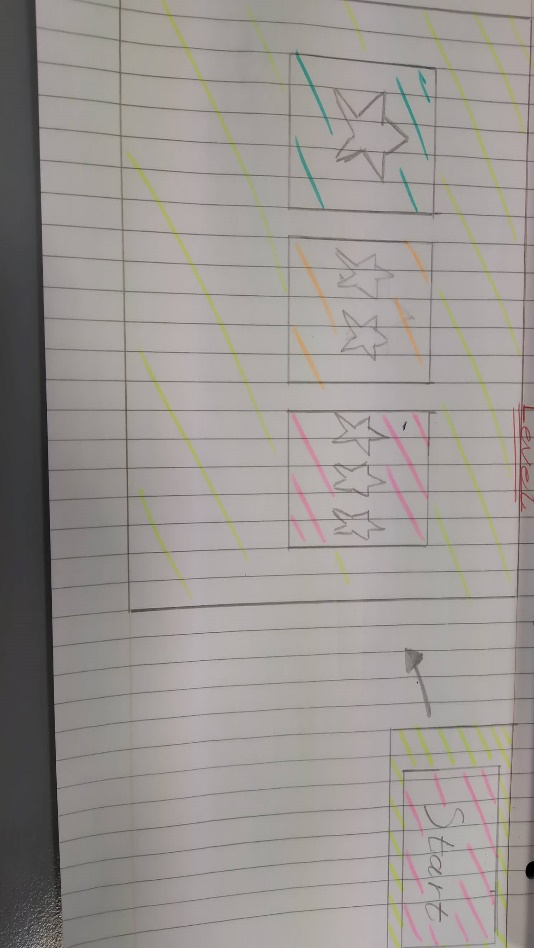 Level
Start